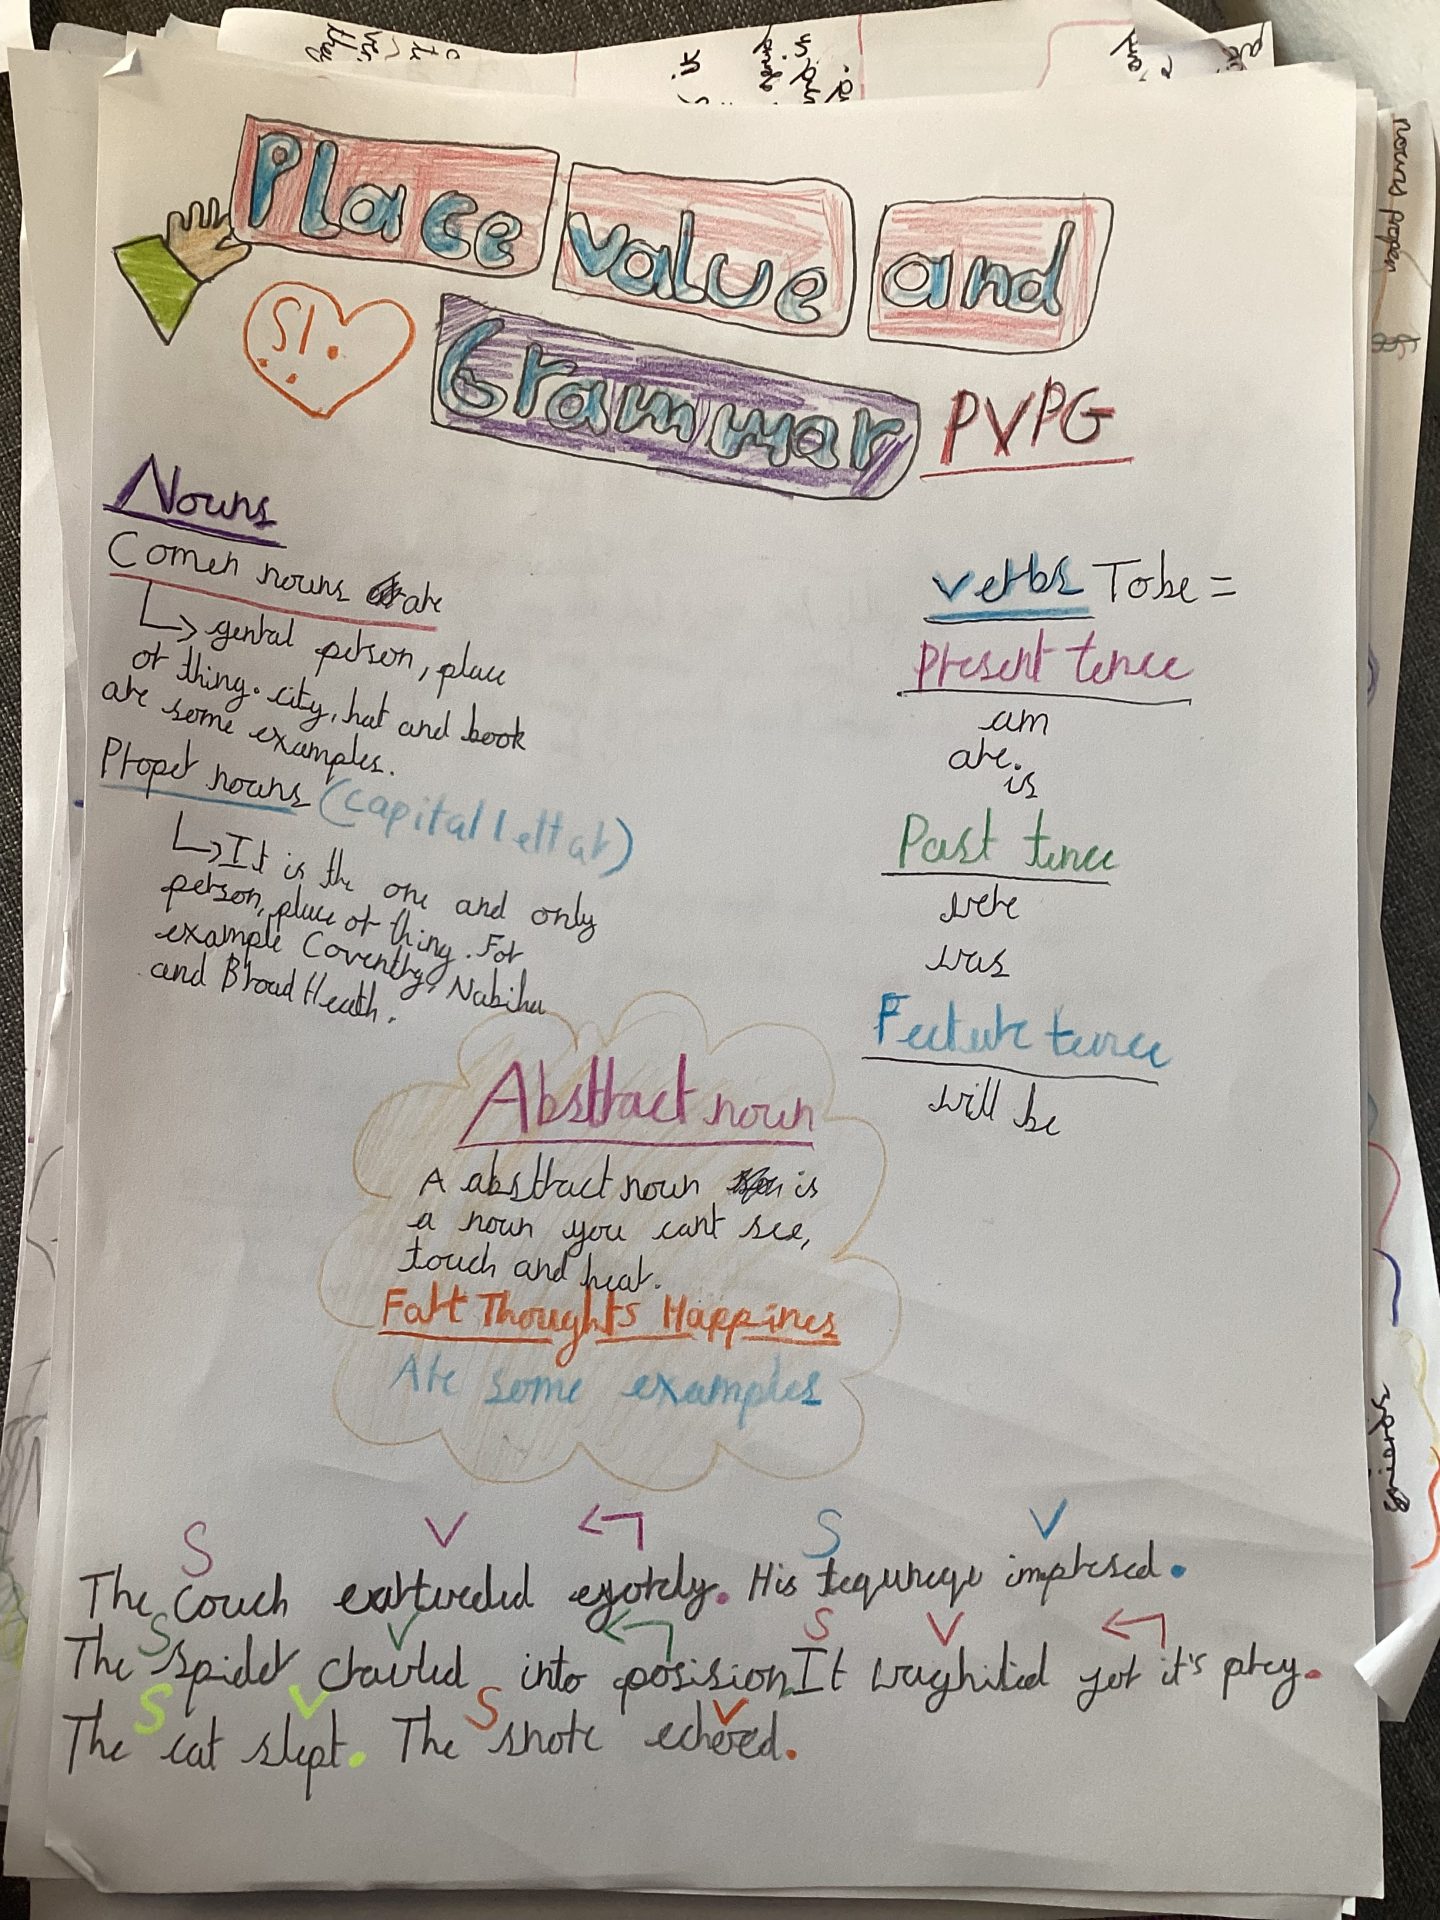 Place value and
Grammar PVPG
SI.
Nouns
Comen nouns are
genral person, place
or thing. city, hat and book
are some examples.
Proper nouns (capital lettar)
It is the one and only
person, place or thing. For
example Coventry, Nabiha
and Broad Heath.
verbs To be =
Present tence
am
are.
is
Past tence
were
was
Feuture tence
will be
Abstract noun
A abstract noun is
a noun you cant see,
touch and hear.
Fart Thoughts Happines
Are some examples
S V S V
The couch exturded . His impresed.
S V S V
The spider crawled into posision. It for it's prey.
S V S V
The cat slept. The snore echered.
nouns proper